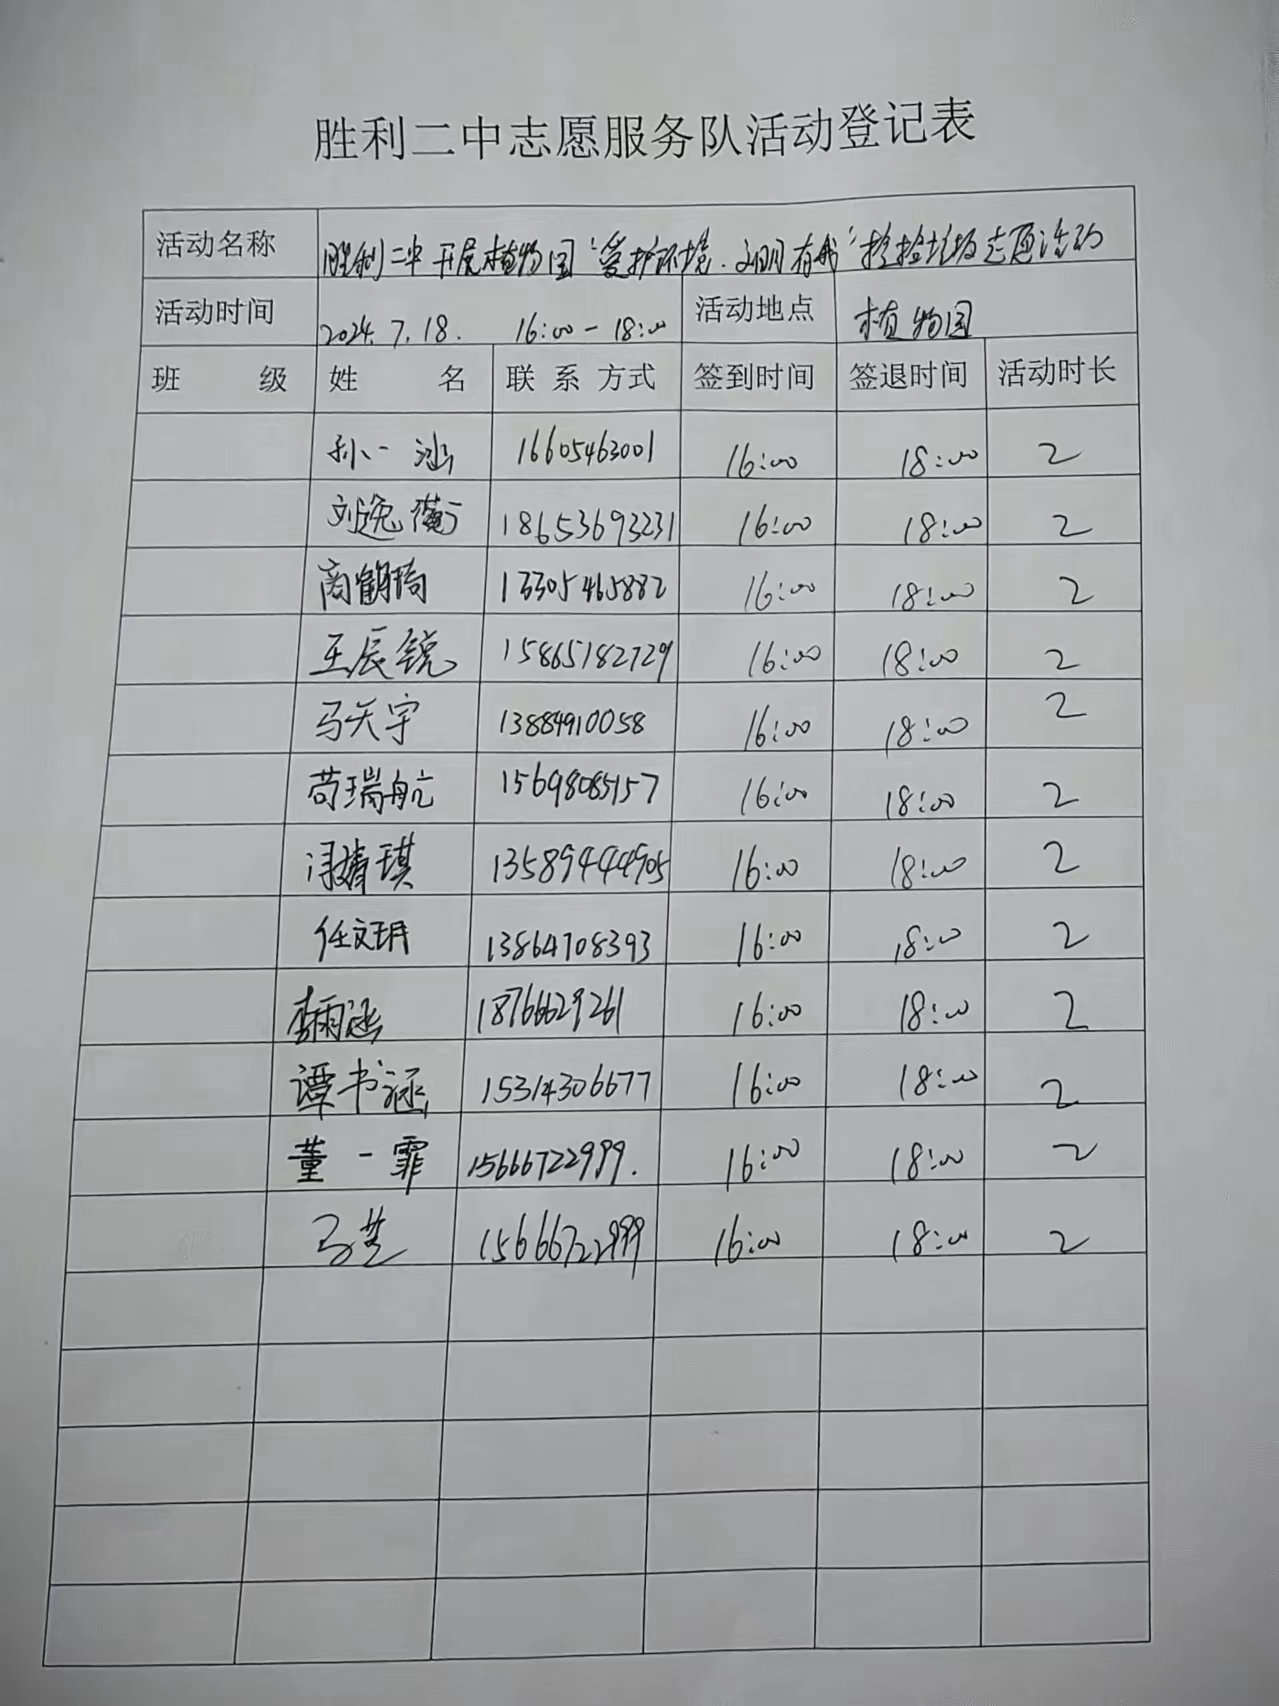 胜利二中志愿服务队活动登记表
活动名称 胜利二中开展植物园“爱护环境.文明有我”捡垃圾志愿活动
活动时间 2024.7.18. 16:00-18:00 活动地点 植物园
班 级 姓 名 联系方式 签到时间 签退时间 活动时长
孙一涵 16605463001 16:00 18:00 2
刘逸 18653693231 16:00 18:00 2
商鹤琦 13305465882 16:00 18:00 2
王辰锐 15865182729 16:00 18:00 2
马天宇 13884910058 16:00 18:00 2
苟瑞航 15698085157 16:00 18:00 2
冯婧琪 13589444905 16:00 18:00 2
任文玥 13864708393 16:00 18:00 2
李雨涵 18766629261 16:00 18:00 2
谭书涵 15314306677 16:00 18:00 2
董一霏 15666722999. 16:00 18:00 2
马芝 15666722999 16:00 18:00 2